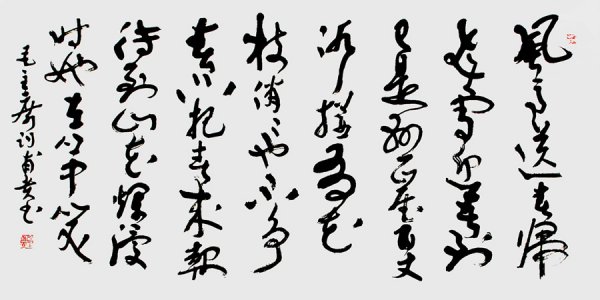 風雨送春歸
飛雪迎春到
已是悬崖百丈
冰猶有花
枝俏〻也不争
春只把春来報
待到山花爛漫
时她在丛中笑
毛主席词